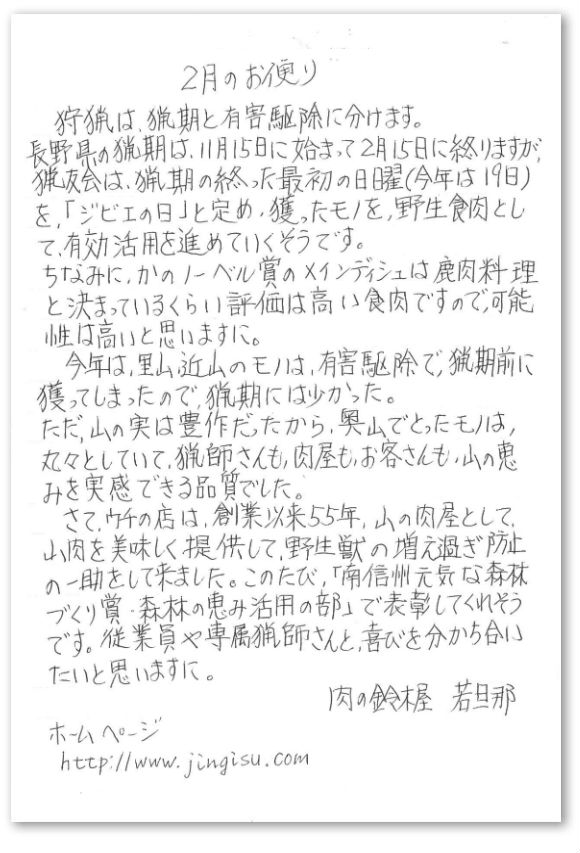 2月のお便り
狩猟は、猟期と有害駆除に分けます。
長野県の猟期は、11月15日に始まって2月15日に終りますが、
猟友会は、猟期の終った最初の日曜(今年は19日)
を、「ジビエの日」と定め、獲ったモノを、野生食肉とし
て、有効活用を進めていくそうです。
ちなみに、かのノーベル賞のメインディシュは鹿肉料理
と決まっているくらい評価は高い食肉ですので、可能
性は高いと思いますに。
今年は、里山、近山のモノは、有害駆除で、猟期前に
獲ってしまったので、猟期には少かった。
ただ、山の実は豊作だったから、奥山でとったモノは、
丸々としていて、猟師さんも、肉屋も、お客さんも、山の恵
みを実感できる品質でした。
さて、ウチの店は、創業以来55年、山の肉屋として、
山肉を美味しく提供して、野生獣の増え過ぎ防止
の一助をして来ました。このたび、「南信州元気な森林
づくり賞・森林の恵み活用の部」で表彰してくれそう
です。従業員や専属猟師さんと、喜びを分かち合い
たいと思いますに。
肉の鈴木屋 若旦那
ホームページ
http://www.jingisu.com